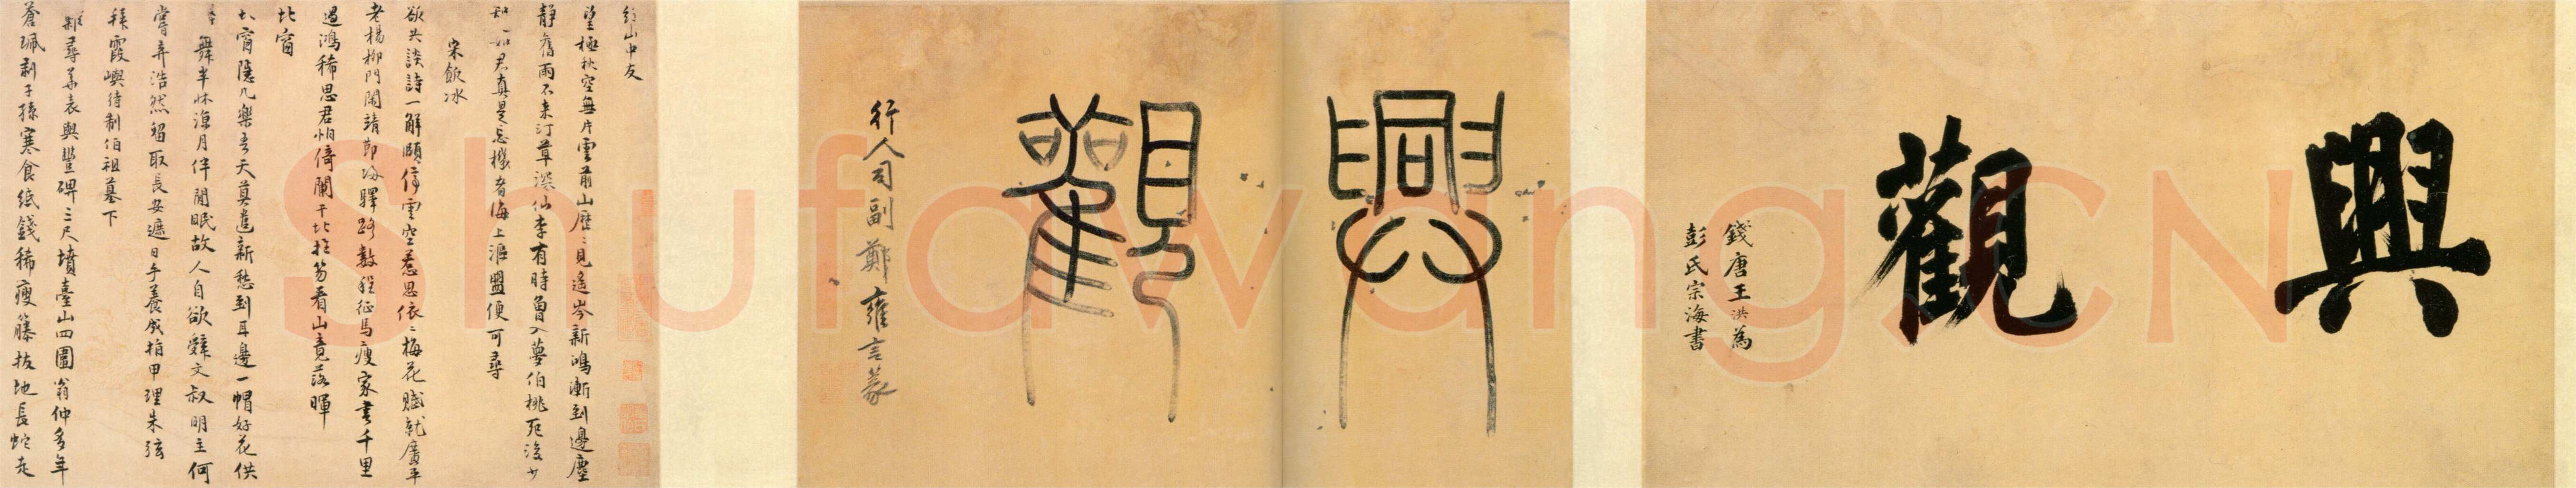 興觀
錢唐王洪為
彭氏宗海書
興觀
行人司副鄭雍言篆
山中友
望極秋空無片雲前山歷歷見遙岑新鴻漸到邊塵
靜舊雨不来汀草深仙李有時曾入夢伯桃死後少
知如君真是忘機者海上漚盟便可尋
宋飯冰
欲共談詩一解頤停雲空惹思依依梅花賦就廣平
老楊柳門閑靖節歸驛路數程征馬瘦家書千里
過鴻稀思君怕倚闌干北拄笏看山竟落暉
北窗
北窗隱几樂吾天莫遣新愁到耳邊一帽好花供
舞半牀涼月伴閒眠故人自欲辭文叔明主何
嘗弃浩然留取長安遮日手養成指甲理朱弦
拜霞嶼待制伯祖墓下
難尋華表與豐碑三尺墳臺山四圍翁仲多年
蒼珮剥子孫寒食紙錢稀瘦藤拔地長蛇走
Shufawang.CN